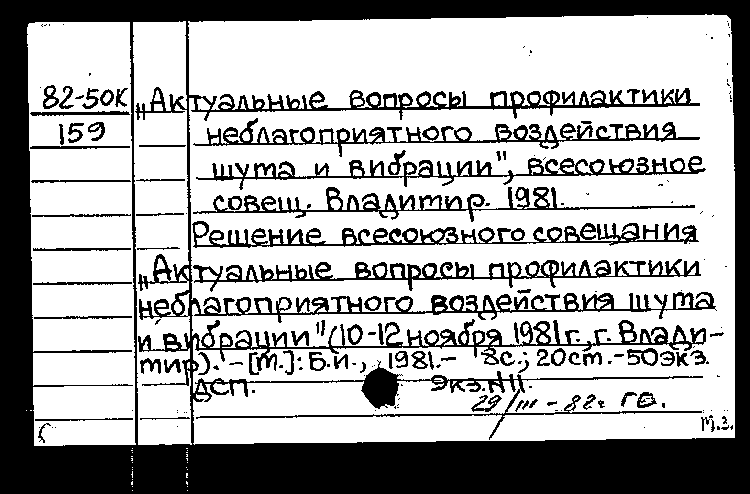 82-50К „Актуальные вопросы профилактики
159 неблагоприятного воздействия
шума и вибрации", всесоюзное
совещ. Владимир. 1981.
Решение всесоюзного совещания
„Актуальные вопросы профилактики
неблагоприятного воздействия шума
и вибрации" (10-12 ноября 1981 г., г. Влади-
мир). - [М.]: Б.и., 1981. - 8с.; 20см. - 50экз.
ДСП. Экз. №11.
29/III - 82г
М.З.